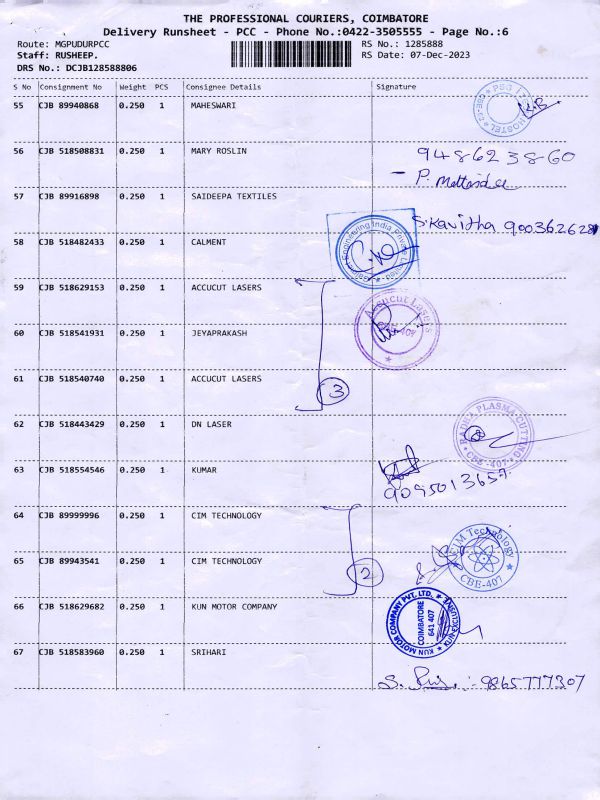 THE PROFESSIONAL COURIERS, COIMBATORE
Delivery Runsheet - PCC - Phone No.:0422-3505555 - Page No.:6
Route: MGPUDURPCC
RS No.: 1285888
Staff: RUSHEEP.
RS Date: 07-Dec-2023
DRS No.: DCJB128588806
S No Consignment No Weight PCS Consignee Details Signature
55 CJB 89940868 0.250 1 MAHESWARI
PSG HOSTEL
56 CJB 518508831 0.250 1 MARY ROSLIN
9486623860
P.
57 CJB 89916898 0.250 1 SAIDEEPA TEXTILES
S.Kavitha 9003626281
58 CJB 518482433 0.250 1 CALMENT
Engineering India Private Limited
59 CJB 518629153 0.250 1 ACCUCUT LASERS
Accucut Lasers
60 CJB 518541931 0.250 1 JEYAPRAKASH
61 CJB 518540740 0.250 1 ACCUCUT LASERS
3
62 CJB 518443429 0.250 1 DN LASER
RADHA PLASMA CUTTING
CBE-407
63 CJB 518554546 0.250 1 KUMAR
9095013657
64 CJB 89999996 0.250 1 CIM TECHNOLOGY
65 CJB 89943541 0.250 1 CIM TECHNOLOGY
2
CIM Technology
CBE-407
66 CJB 518629682 0.250 1 KUN MOTOR COMPANY
KUN MOTOR COMPANY PVT. LTD.
COIMBATORE
641 407
KUN-EXCLUSIVE
67 CJB 518583960 0.250 1 SRIHARI
S. :-9865777307